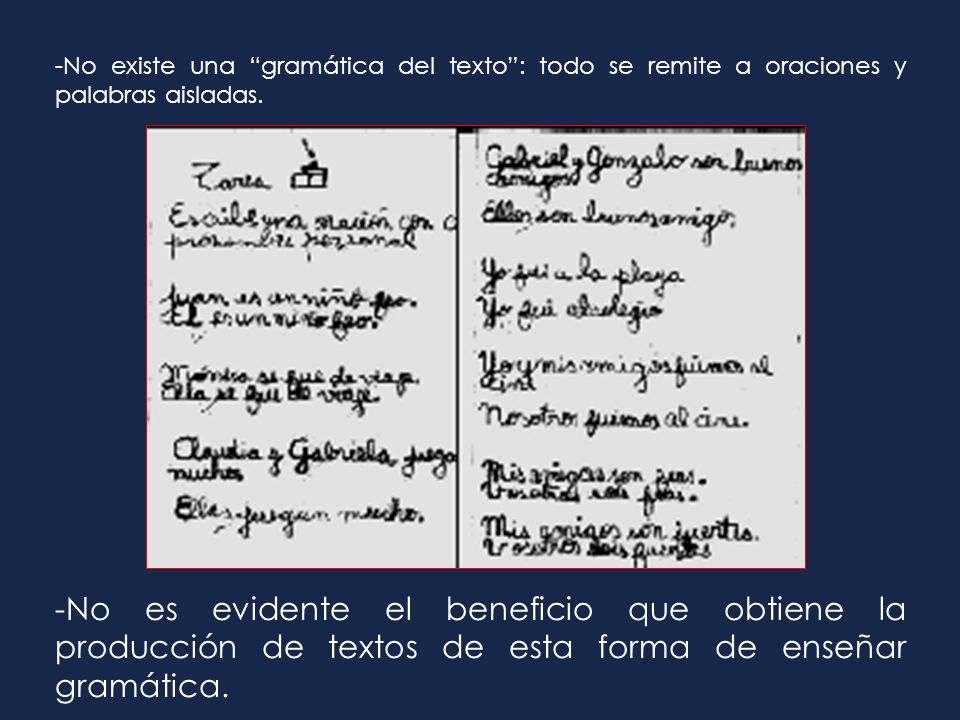 -No existe una “gramática del texto”: todo se remite a oraciones y
palabras aisladas.
Tarea
Escribe una oración con
pronombre personal
Juan es un niño feo.
El es un niño feo.
se fue de viaje.
Ella se fue de viaje.
Claudia y Gabriela juega
muchos
Ellas juegan mucho.
Gabriel y Gonzalo son buenos
Ellos son buenos amigo.
Yo fui a la playa
Yo fui al colegio
Yo y mis amigos fuimos al
cine
Nosotros fuimos al cine.
Mis amigas son feas.
Vosotras sois feas.
Mis amigos son fuertes.
Vosotros sois fuertes
-No es evidente el beneficio que obtiene la
producción de textos de esta forma de enseñar
gramática.